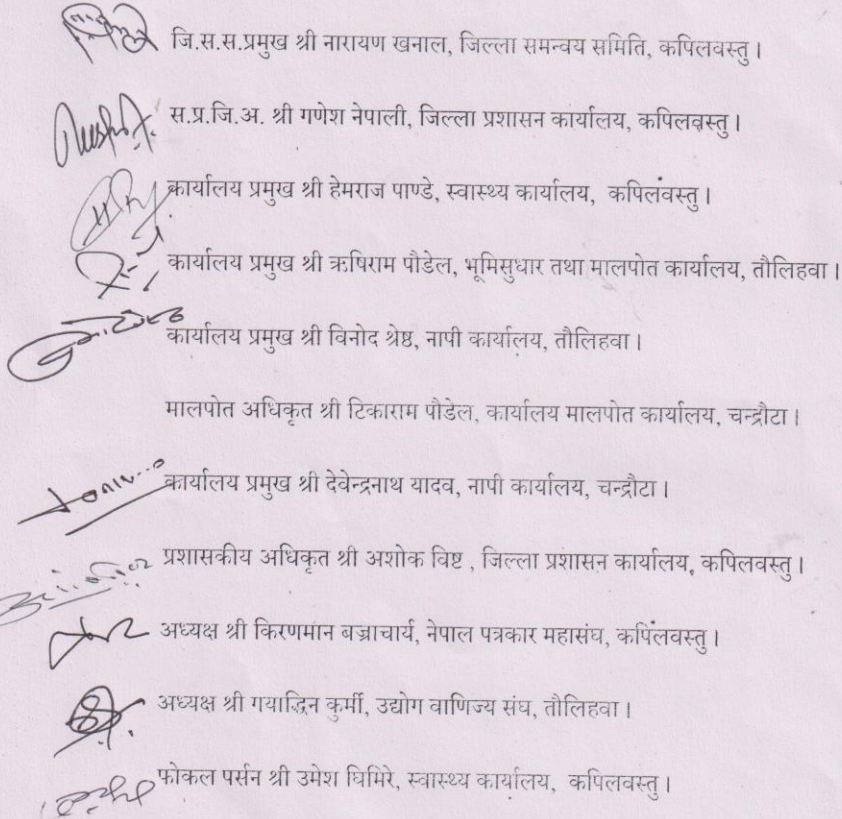 जि.स.स.प्रमुख श्री नारायण खनाल, जिल्ला समन्वय समिति, कपिलवस्तु।
स.प्र.जि.अ. श्री गणेश नेपाली, जिल्ला प्रशासन कार्यालय, कपिलवस्तु।
कार्यालय प्रमुख श्री हेमराज पाण्डे, स्वास्थ्य कार्यालय, कपिलवस्तु।
कार्यालय प्रमुख श्री ऋषिराम पौडेल, भूमिसुधार तथा मालपोत कार्यालय, तौलिहवा।
कार्यालय प्रमुख श्री विनोद श्रेष्ठ, नापी कार्यालय, तौलिहवा।
मालपोत अधिकृत श्री टिकाराम पौडेल, कार्यालय मालपोत कार्यालय, चन्द्रौटा।
कार्यालय प्रमुख श्री देवेन्द्रनाथ यादव, नापी कार्यालय, चन्द्रौटा।
प्रशासकीय अधिकृत श्री अशोक विष्ट , जिल्ला प्रशासन कार्यालय, कपिलवस्तु।
अध्यक्ष श्री किरणमान बज्राचार्य, नेपाल पत्रकार महासंघ, कपिलवस्तु।
अध्यक्ष श्री गयाद्धिन कुर्मी, उद्योग वाणिज्य संघ, तौलिहवा।
फोकल पर्सन श्री उमेश घिमिरे, स्वास्थ्य कार्यालय, कपिलवस्तु।